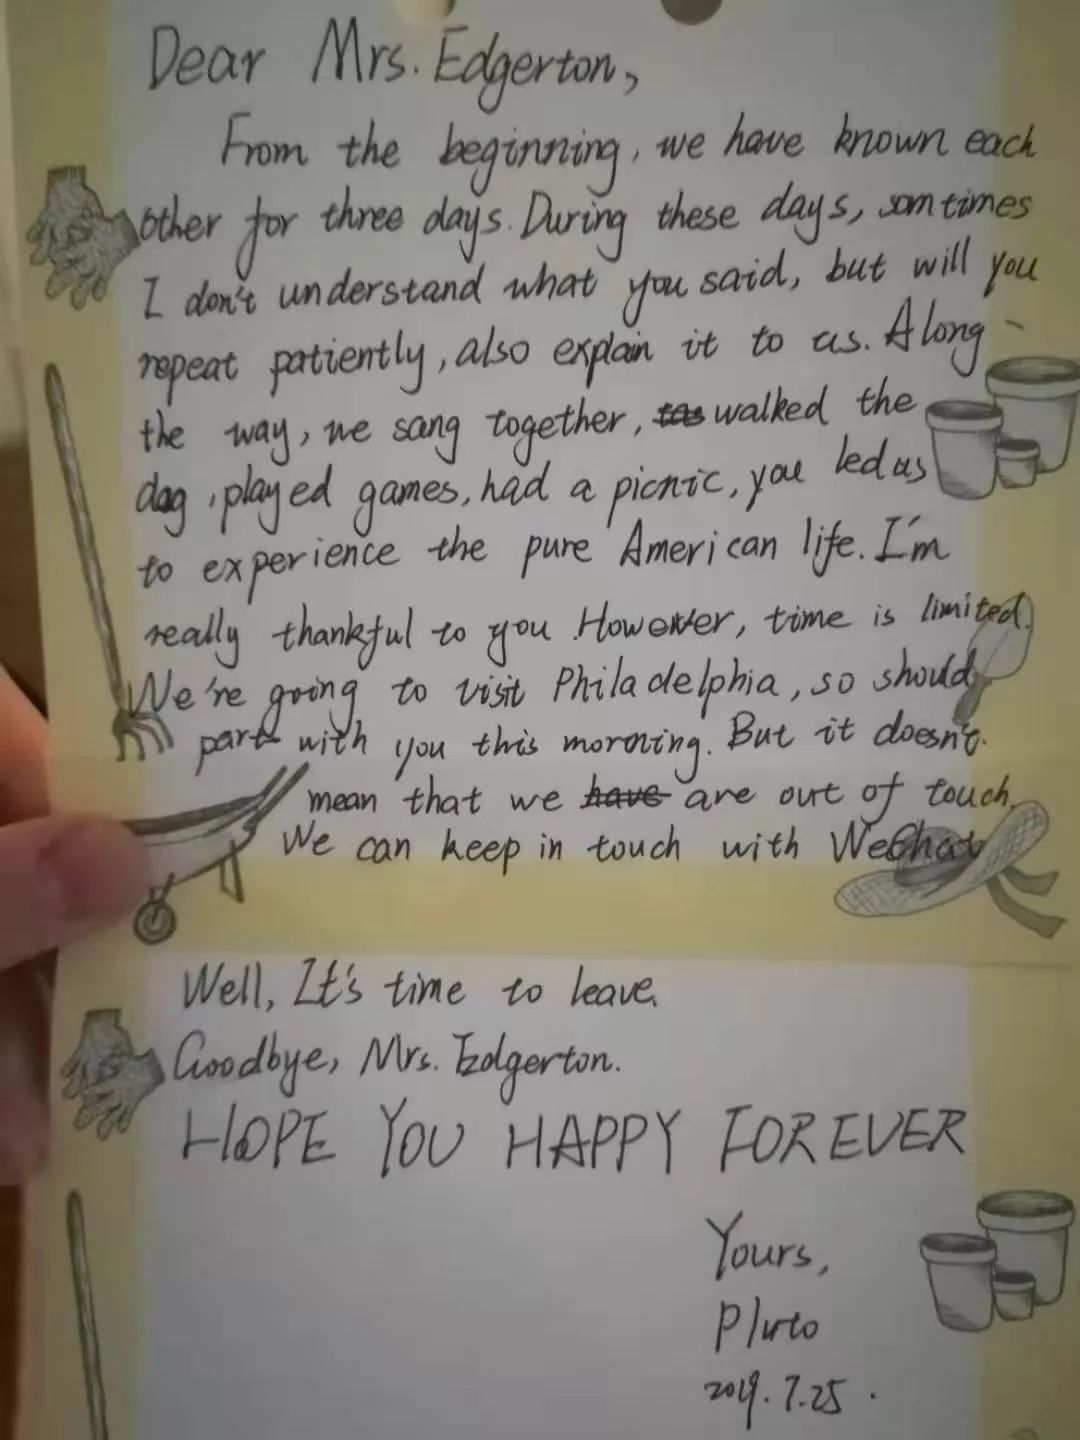 Dear Mrs. Edgerton,
From the beginning, we have known each
other for three days. During these days, somtimes
I don't understand what you said, but will you
repeat patiently, also explain it to us. Along
the way, we sang together, walked the
dog, played games, had a picnic, you led us
to experience the pure American life. I'm
really thankful to you. However, time is limited.
We're going to visit Philadelphia, so should
part with you this morning. But it doesn't
mean that we have are out of touch.
We can keep in touch with WeChat
Well, It's time to leave.
Goodbye, Mrs. Edgerton.
HOPE YOU HAPPY FOREVER
Yours,
Pluto
2019.7.25.